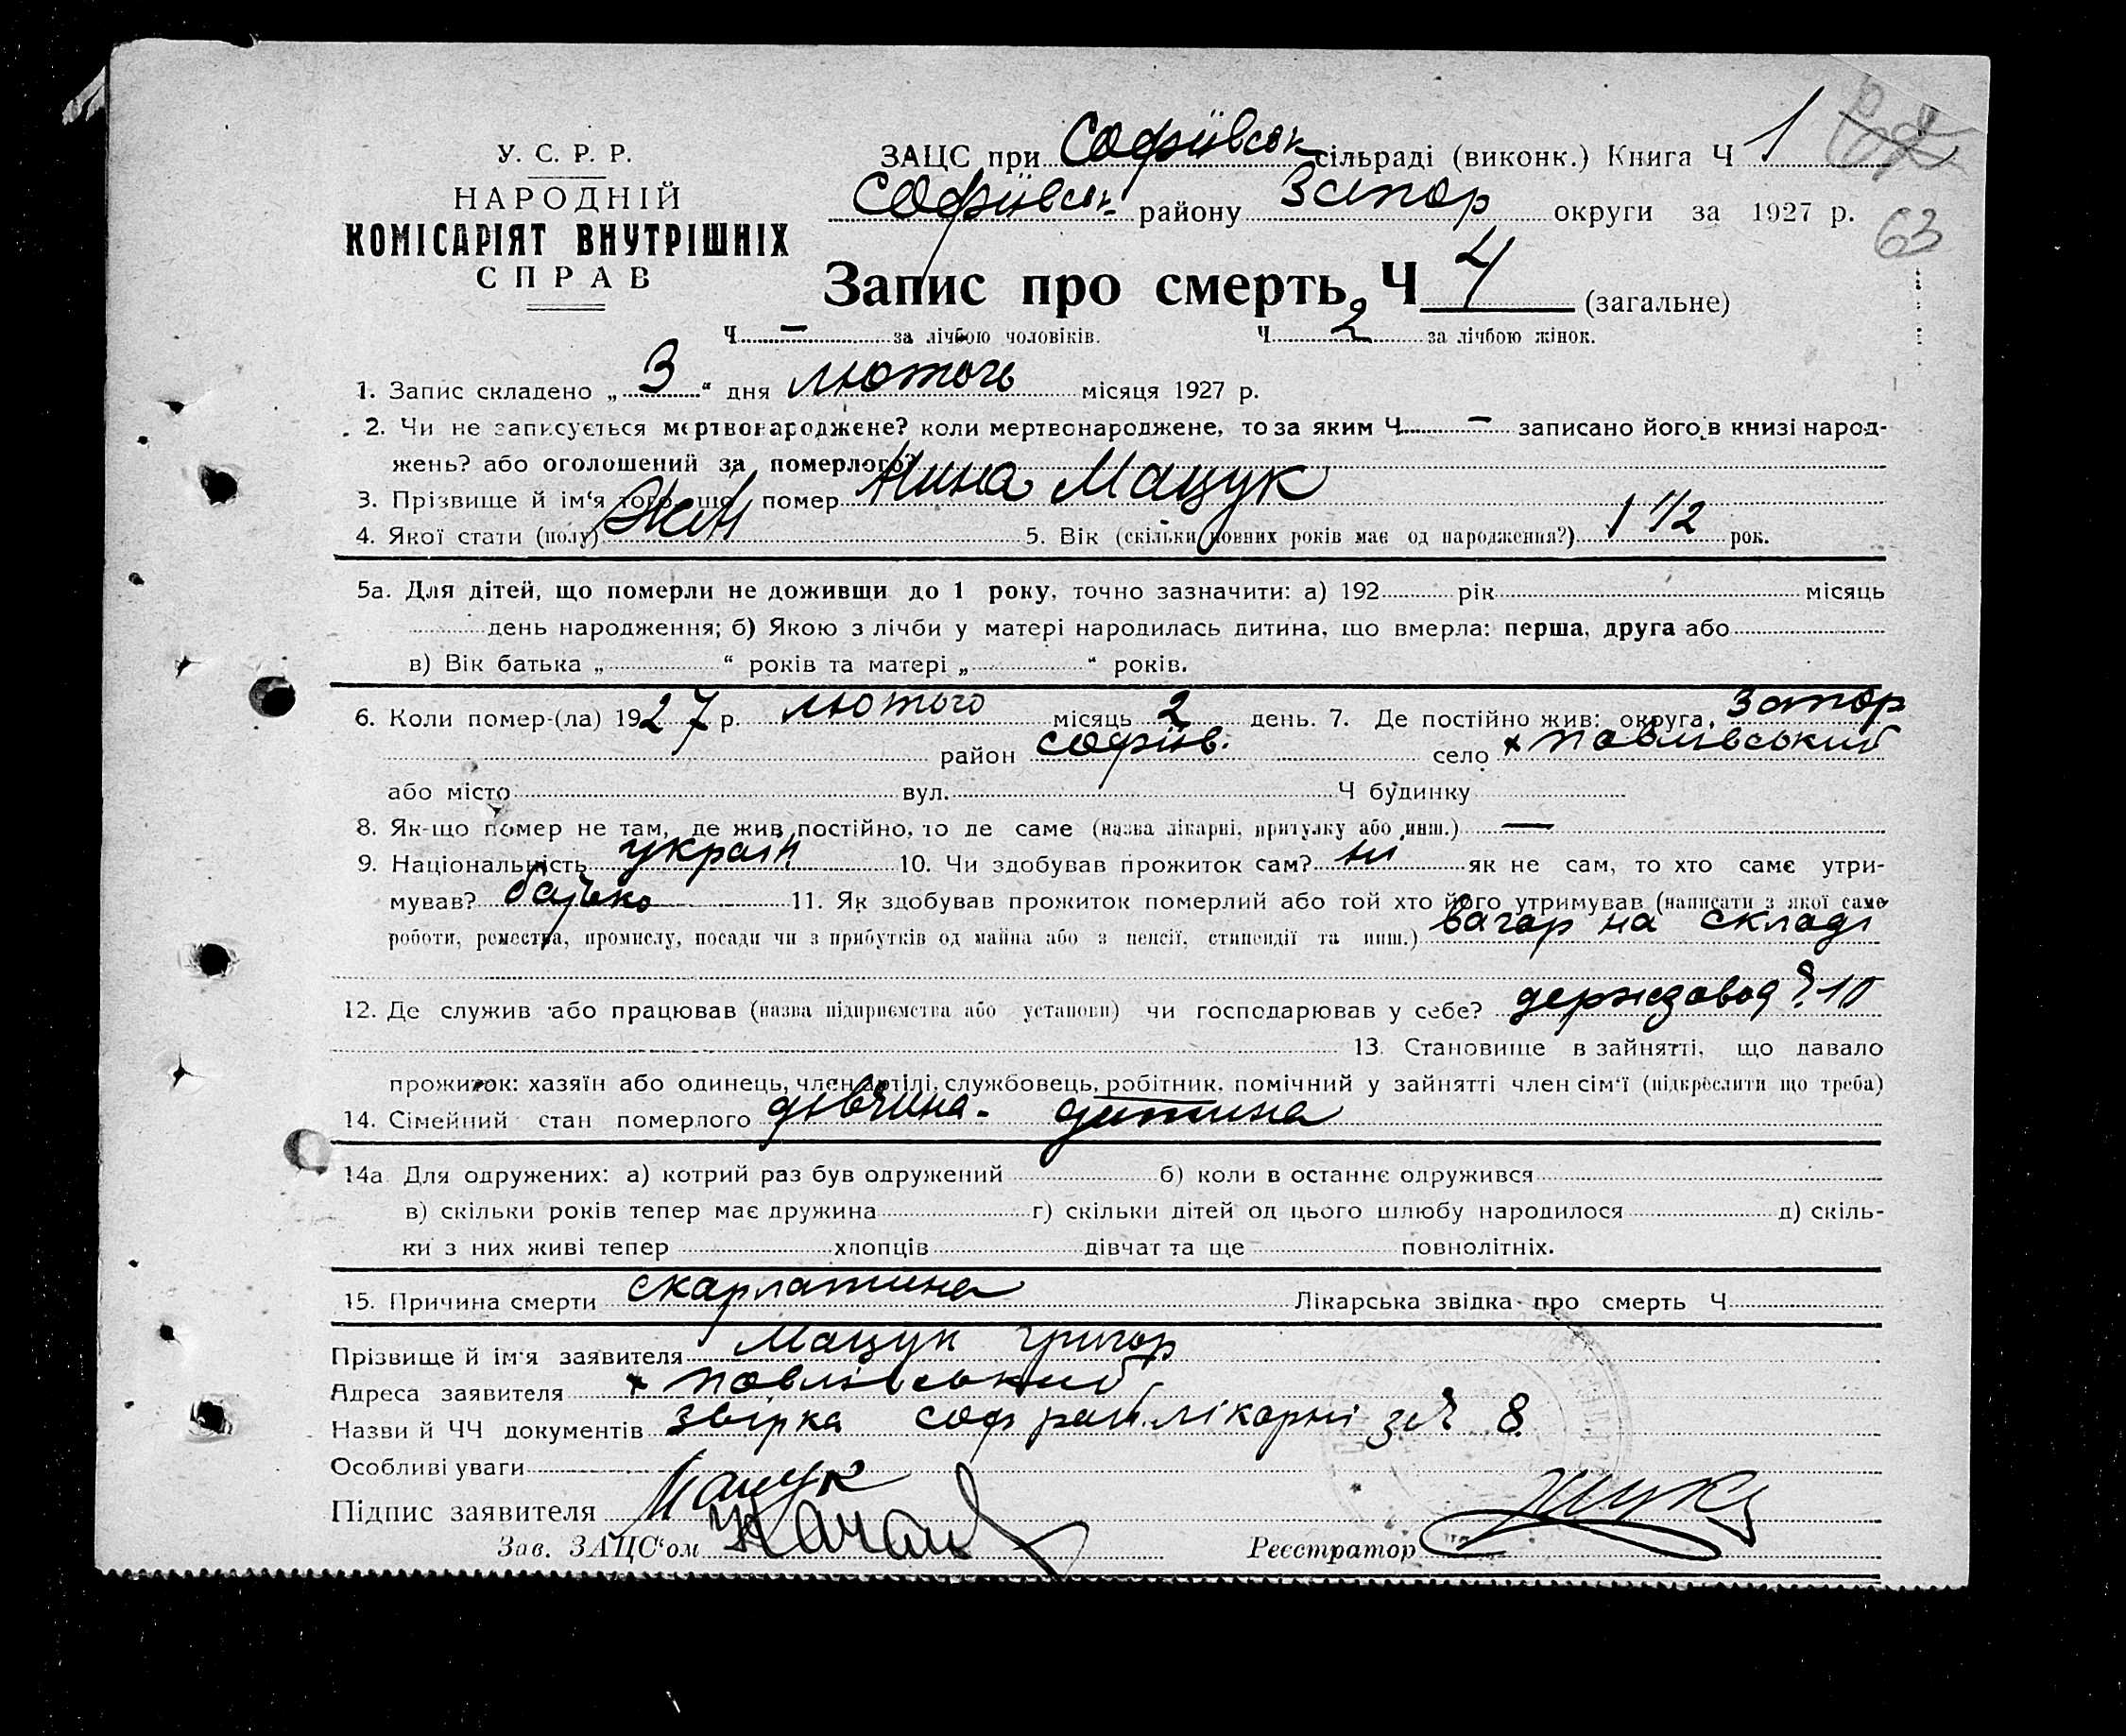 У. С. Р. Р.
НАРОДНІЙ
КОМІСАРІЯТ ВНУТРІШНІХ
СПРАВ
ЗАЦС при Софіївськ сільраді (виконк.) Книга Ч 1
Софіївськ району Запор округи за 1927 р.
63
Запис про смерть Ч 4 (загальне)
Ч — за лічбою чоловіків. Ч 2 за лічбою жінок.
1. Запис складено „ 3 “ дня лютого місяця 1927 р.
2. Чи не записується мертвонароджене? коли мертвонароджене, то за яким Ч — записано його в книзі народ-
жень? або оголошений за померлого?
3. Прізвище й ім‘я того, що помер Нина Мацук
4. Якої стати (полу) Жін 5. Вік (скільки повних років має од народження?) 1 1/2 рок.
5а. Для дітей, що померли не доживши до 1 року, точно зазначити: а) 192 рік місяць
день народження; б) Якою з лічби у матері народилась дитина, що вмерла: перша, друга або
в) Вік батька „ “ років та матері „ “ років.
6. Коли помер-(ла) 1927 р. лютого місяць 2 день. 7. Де постійно жив: округа, Запор
район Софіїв. село х Павлівський
або місто вул. Ч будинку
8. Як-що помер не там, де жив постійно, то де саме (назва лікарні, притулку або инш.) —
9. Національність україн 10. Чи здобував прожиток сам? ні як не сам, то хто саме утри-
мував? батько 11. Як здобував прожиток померлий або той хто його утримував (написати з якої саме
роботи, ремества, промислу, посади чи з прибутків од майна або з пенсії, стипендії та инш.) вагар на складі
12. Де служив або працював (назва підприємства або установи) чи господарював у себе? держзавод 10
13. Становище в зайнятті, що давало
прожиток: хазяїн або одинець, член артілі, службовець, робітник, помічний у зайнятті член сім‘ї (підкреслити що треба)
14. Сімейний стан померлого дівчина - дитина
14а Для одружених: а) котрий раз був одружений б) коли в останнє одружився
в) скільки років тепер має дружина г) скільки дітей од цього шлюбу народилося д) скіль-
ки з них живі тепер хлопців дівчат та ще повнолітніх.
15. Причина смерти скарлатина Лікарська звідка про смерть Ч
Прізвище й ім‘я заявителя Мацук Григор
Адреса заявителя х Павлівський
Назви й ЧЧ документів звірка соф рай.лікарні за Ч 8
Особливі уваги
Підпис заявителя Мацук
Зав. ЗАЦС‘ом
Реєстратор